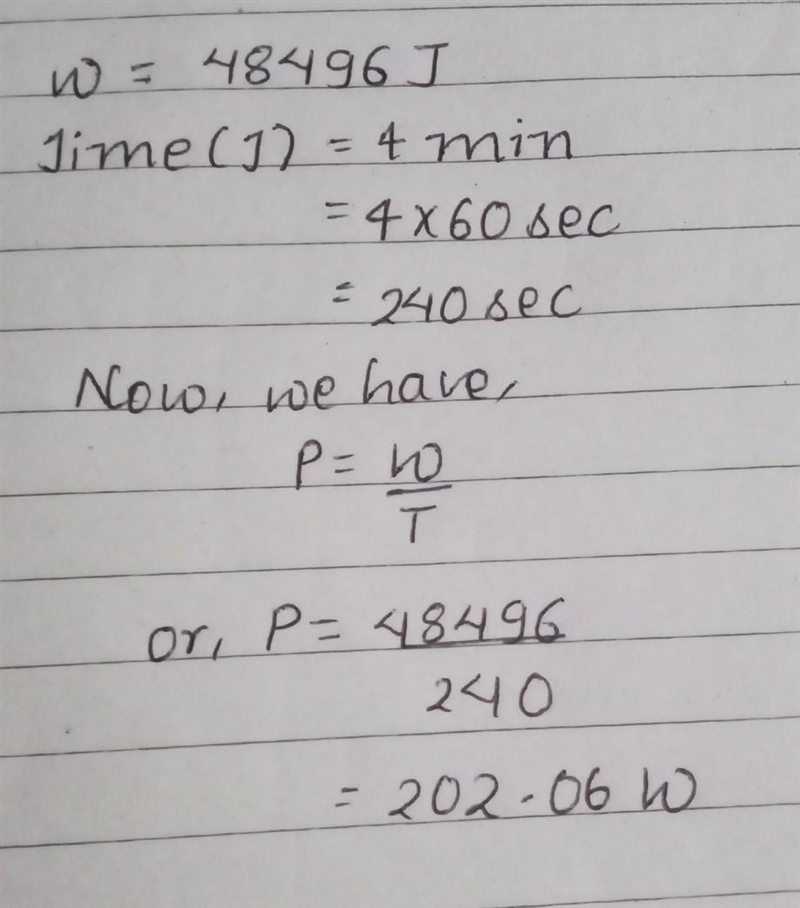 W = 48496 J
Time (T) = 4 min
= 4 x 60 sec
= 240 sec
Now, we have,
P = W
T
or, P = 48496
240
= 202.06 W